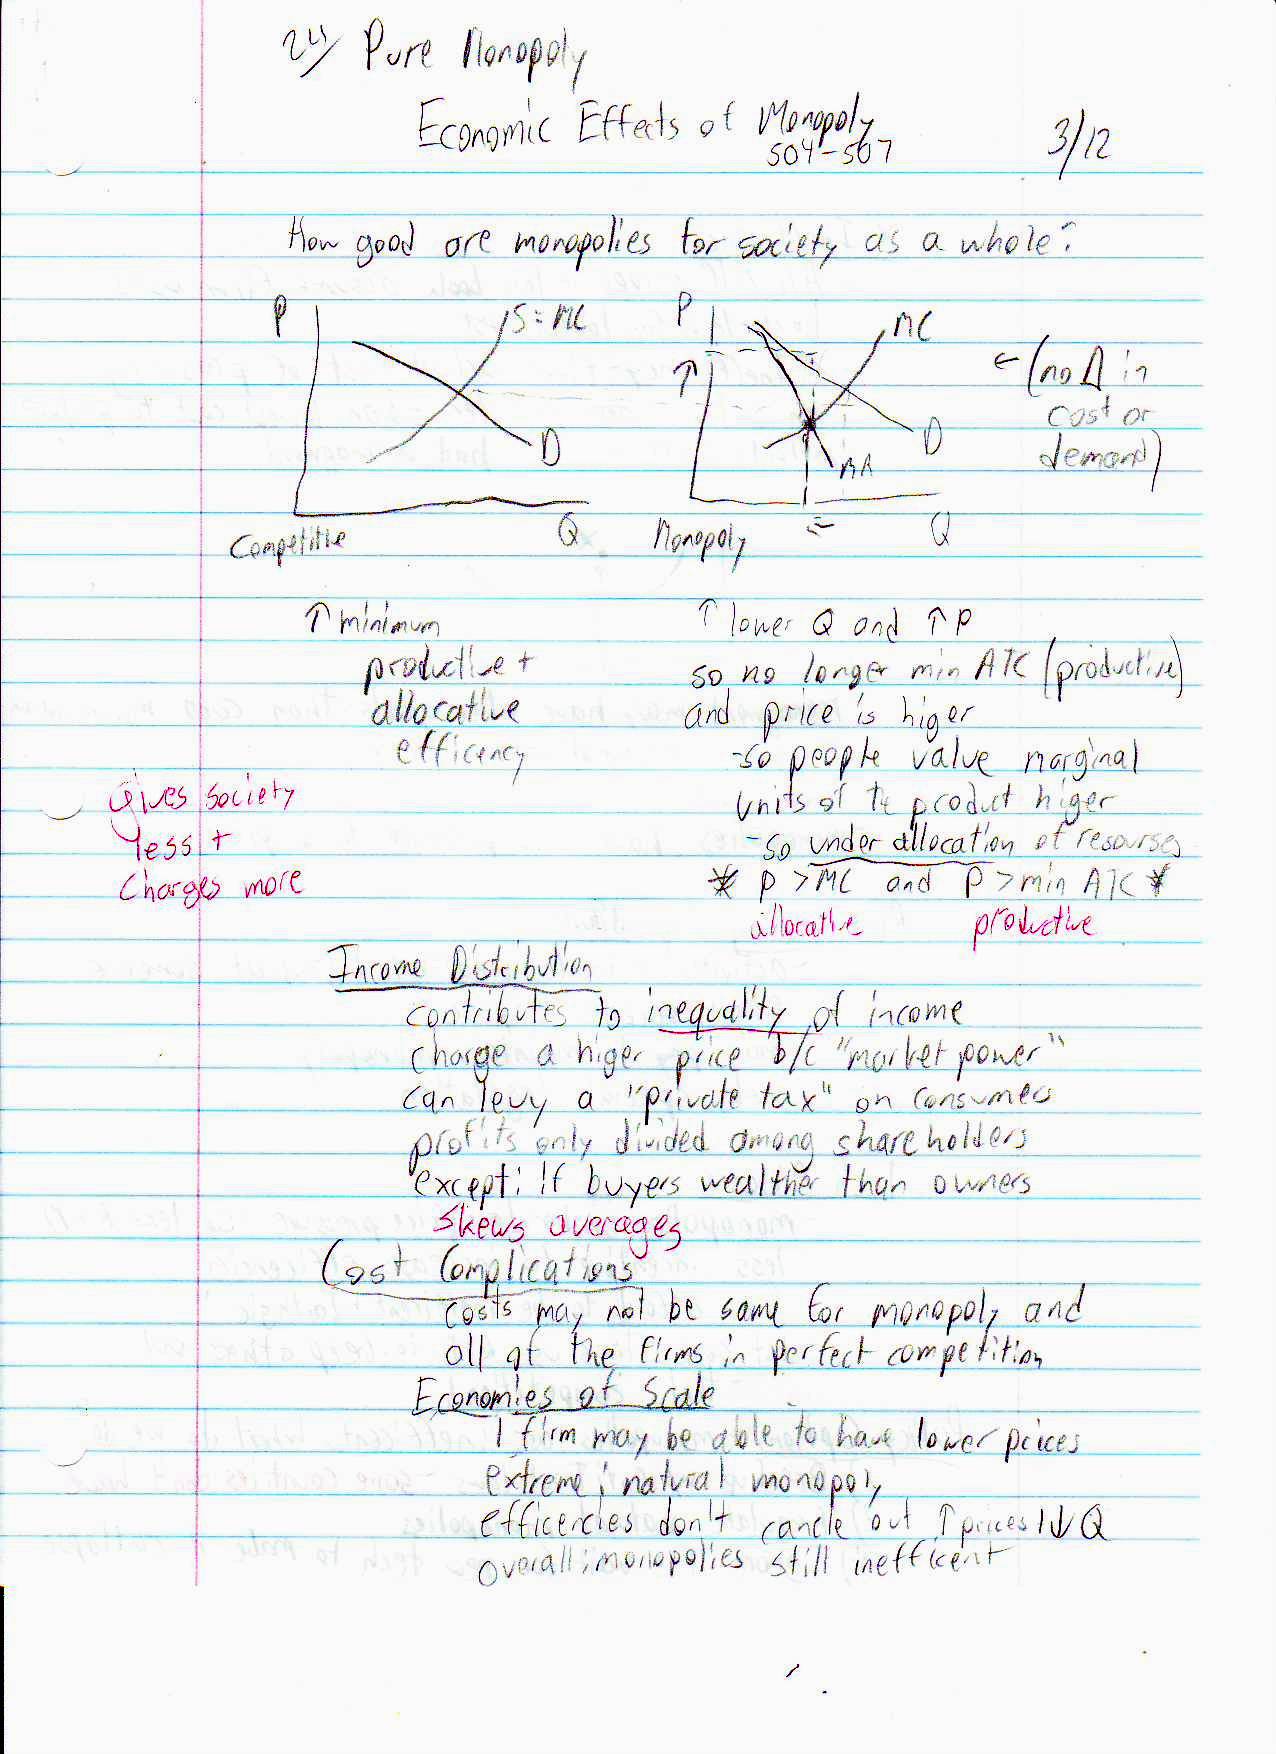 24) Pure Monopoly
Economic Effects of Monopoly
504-507
3/12
How good are monopolies for society as a whole?
P
S=MC
D
Q
Competitive
P
↑
MC
D
MR
Q
Monopoly
←
← (no Δ in
cost or
demand)
↑ minimum
productive +
allocative
efficency
↑ lower Q and ↑ P
so no longer min ATC (productive)
and price is higer
-so people value marginal
units of the product higer
-so under allocation of resourses
* P > MC and P > min ATC *
allocative productive
Gives society
less +
charges more
Income Distribution
contributes to inequality of income
charge a higer price b/c "market power"
can levy a "private tax" on consumers
profits only divided among shareholders
except: if buyers wealther than owners
skews averages
Cost Complications
costs may not be same for monopoly and
all of the firms in perfect competition
Economies of Scale
1 firm may be able to have lower prices
extreme: natural monopoly
efficercies don't cancle out ↑ prices | ↓ Q
overall: monopolies still inefficent